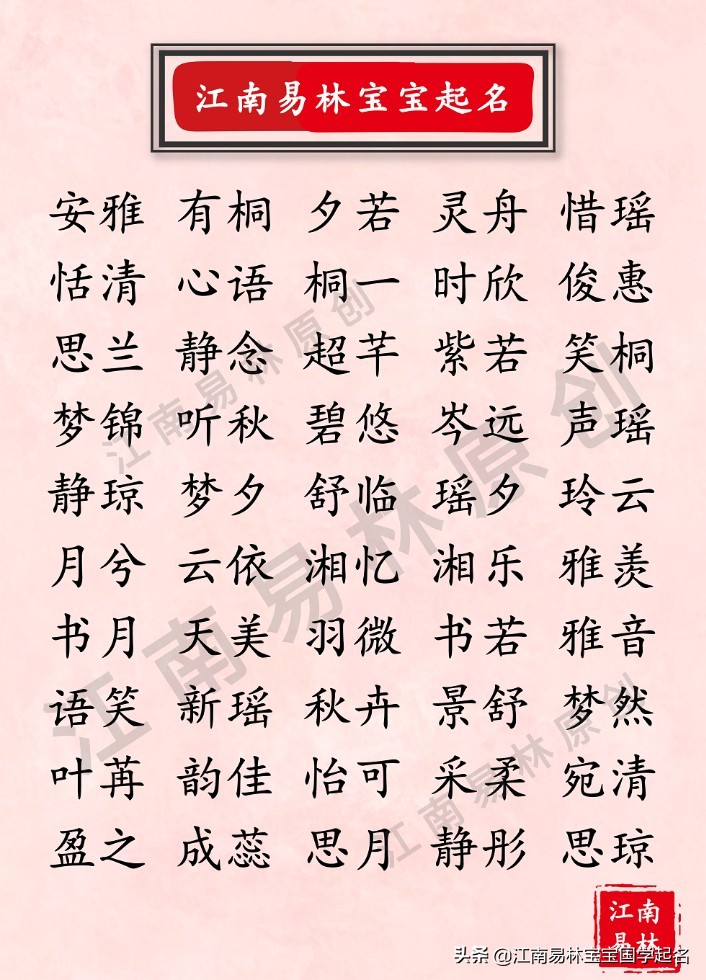 江南易林宝宝起名
安雅 有桐 夕若 灵舟 惜瑶
恬清 心语 桐一 时欣 俊惠
思兰 静念 超芊 紫若 笑桐
梦锦 听秋 碧悠 岑远 声瑶
静琼 梦夕 舒临 瑶夕 玲云
月兮 云依 湘忆 湘乐 雅羡
书月 天美 羽微 书若 雅音
语笑 新瑶 秋卉 景舒 梦然
叶苒 韵佳 怡可 采柔 宛清
盈之 成蕊 思月 静彤 思琼
江南易林原创
江南易林原创
江南易林原创
江南
易林
头条 @江南易林宝宝国学起名